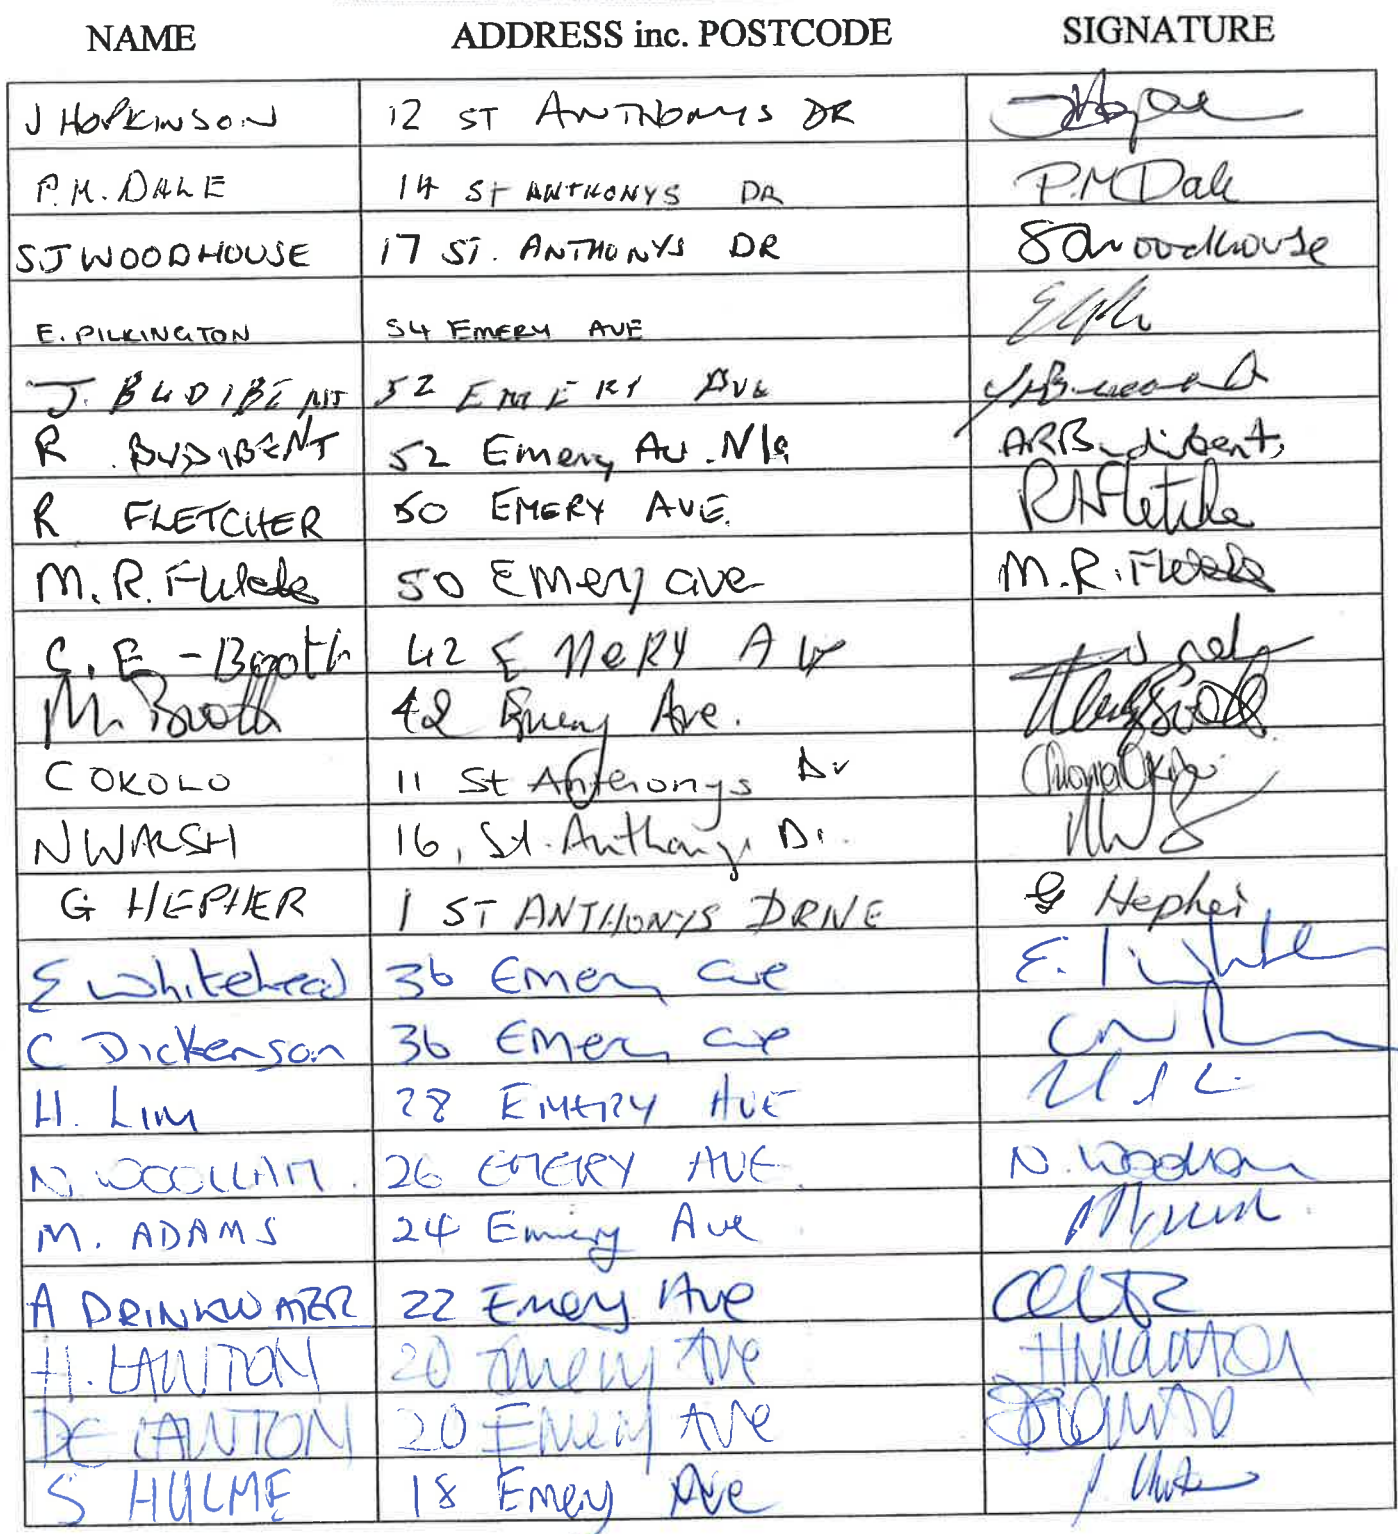 NAME ADDRESS inc. POSTCODE SIGNATURE
J HOPKINSON 12 ST ANTHONYS DR
P.M. DALE 14 ST ANTHONYS DR P.M Dale
SJ WOODHOUSE 17 ST. ANTHONYS DR Woodhouse
E. PILKINGTON 54 EMERY AVE
J. BUDIBENT 52 EMERY AVE
R BUDIBENT 52 Emery Av. N/c ARBudibent,
R FLETCHER 50 EMERY AVE. R Fletcher
M.R. 50 Emery ave M.R.
C. E - Booth 42 EMERY AV
M. Booth 42 Emery Ave. Booth
C OKOLO 11 St Anthonys Dr
N WALSH 16, St. Anthonys Dr.
G HEPHER 1 ST ANTHONYS DRIVE G Hepher
E Whitehead 36 Emery Ave E.
C Dickenson 36 Emery Ave
H. LIM 28 EMERY AVE
N. WOOLLAM. 26 EMERY AVE. N. Woollam
M. ADAMS 24 Emery Ave
A DRINKWATER 22 Emery Ave
H. LAWTON 20 Emery Ave H Lawton
DE LAWTON 20 Emery Ave
S HULME 18 Emery Ave